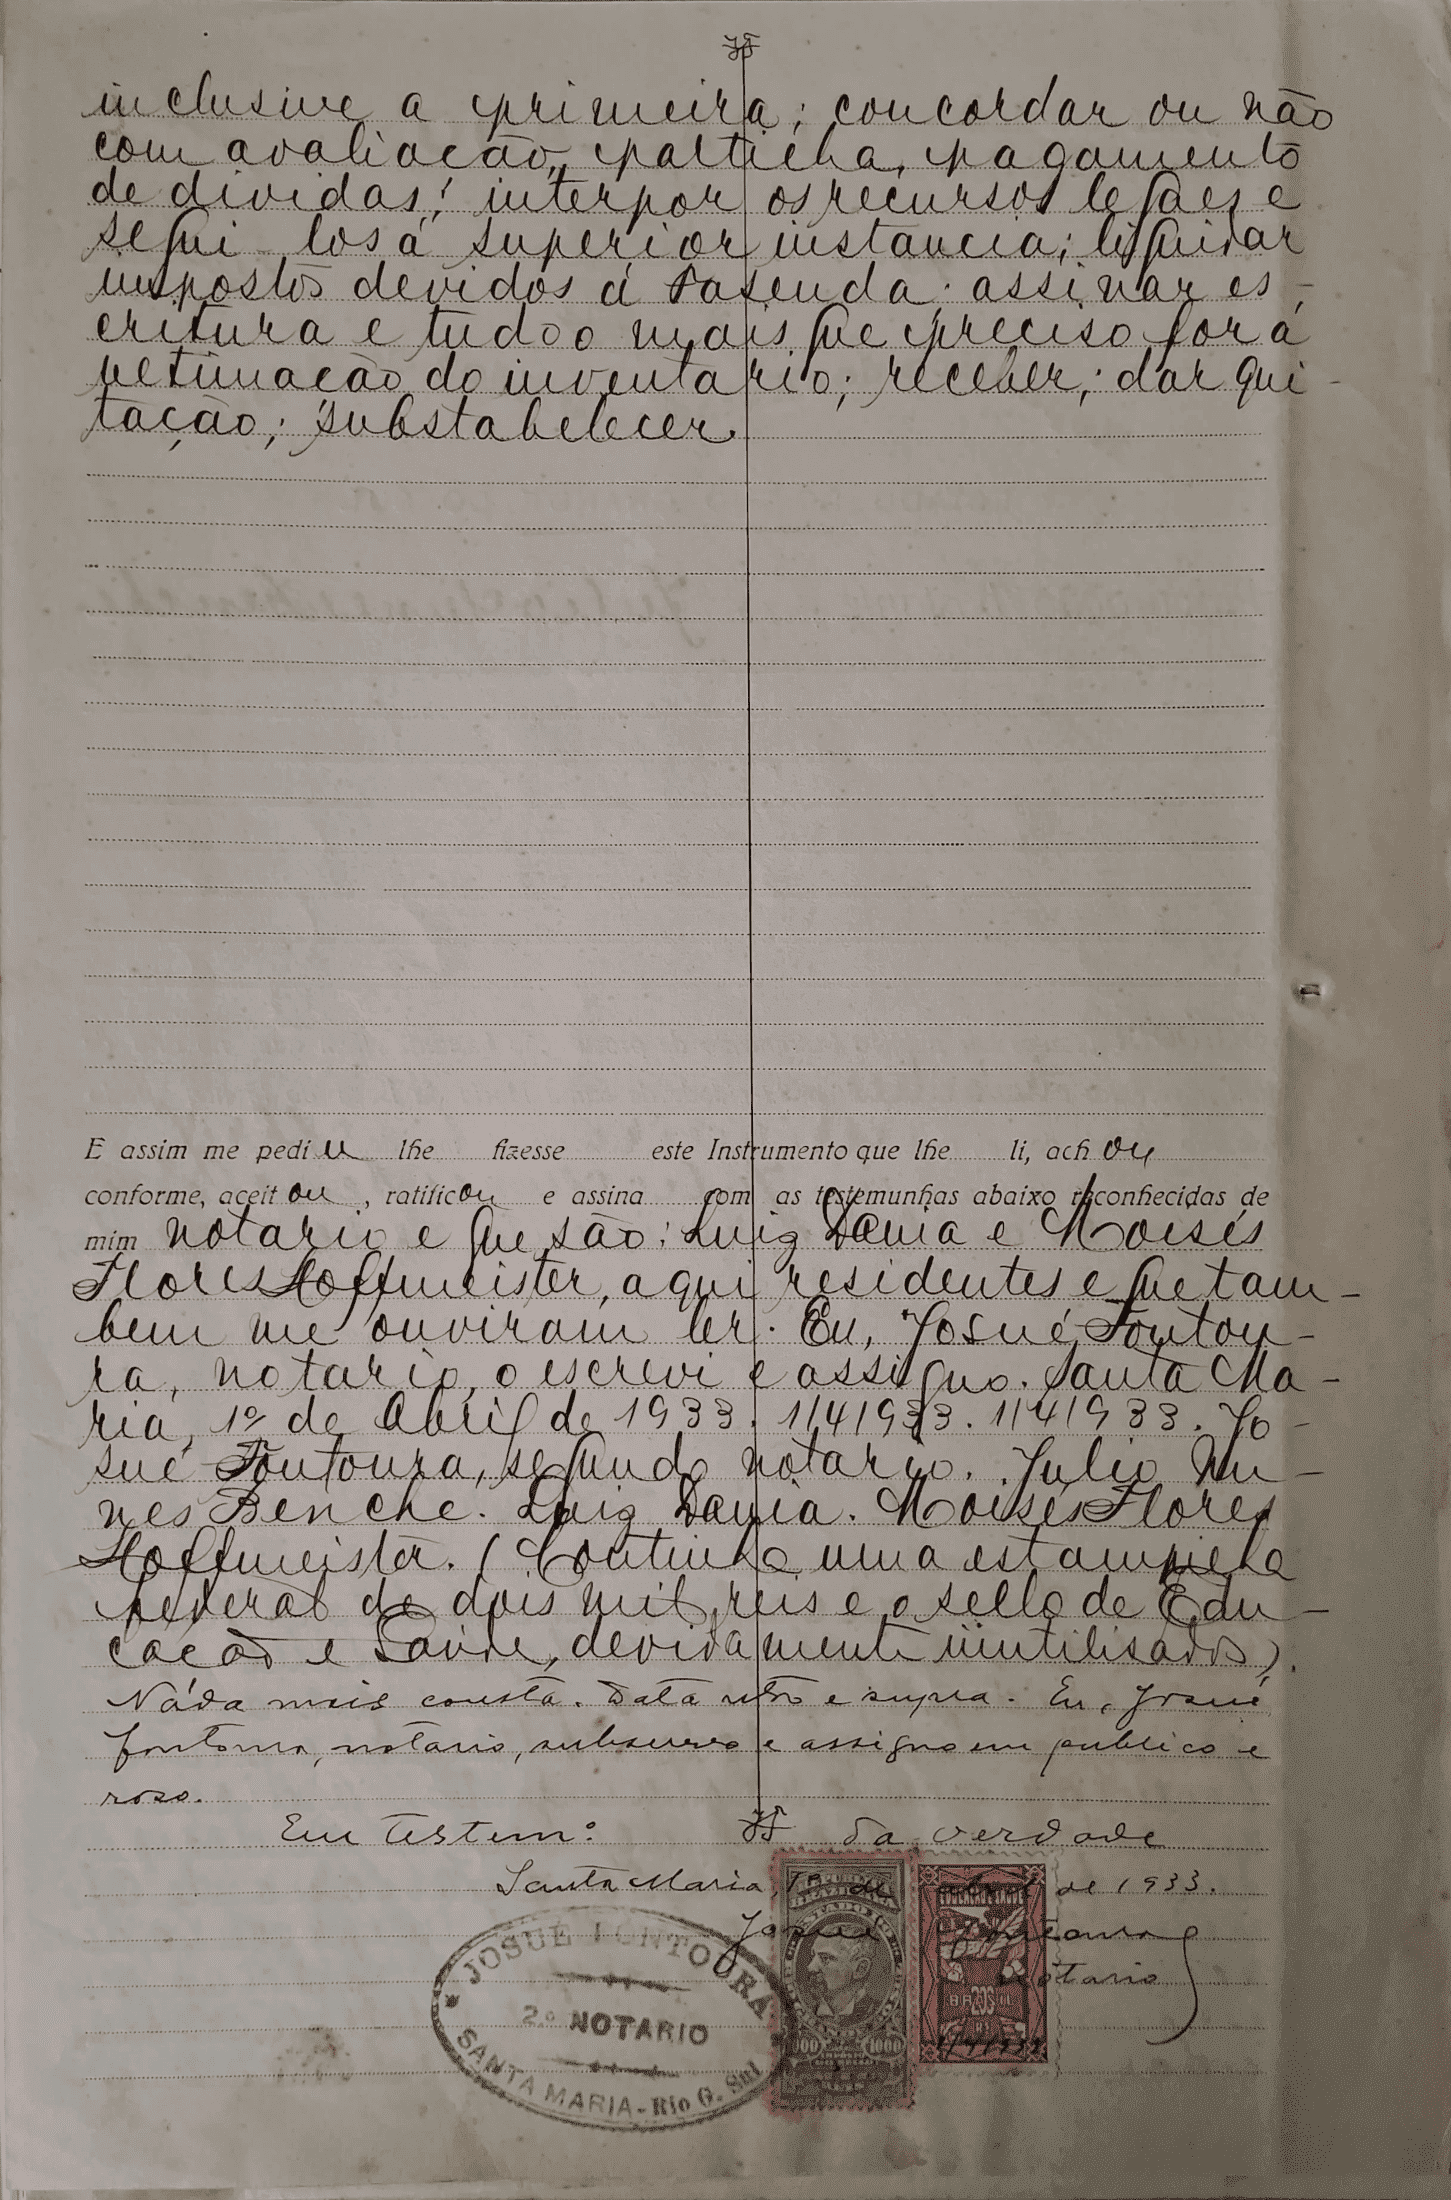 JF
inclusive a primeira; concordar ou não
com avaliacão, partilha, pagamento
de dividas; interpor os recursos legaes e
segui-los á superior instancia; liquidar
impostos devidos á Fasenda; assinar es-
critura e tudo o mais que preciso for á
ultimacão do inventario; receber; dar qui-
tação; substabelecer.
E assim me pediu lhe fizesse este Instrumento que lhe li, achou
conforme, aceitou, ratificou e assina com as testemunhas abaixo reconhecidas de
mim notario e que são: Luiz Dania e Moisés
Flores Hoffmeister, aqui residentes e que tam-
bem me ouviram ler. Eu, Josué Fontou-
ra, notario, o escrevi e assigno. Santa Ma-
ria, 1º de Abril de 1933. 1/4/933. 1/4/933. Jo-
sué Fontoura, segundo notario. Julio Nu-
nes Benche. Luiz Dania. Moisés Flores
Hoffmeister. (Continha uma estampilha
federal de dois mil reis e o sello de Edu-
cacão e Saude, devidamente inutilisados).
Náda mais consta. Data retro e supra. Eu, Josué
Fontoura, notario, subscrevo e assigno em publico e
raso.
Em testem: JF da verdade
Santa Maria, 1º de abril de 1933.
Josué Fontoura
notario
JOSUÉ FONTOURA
2º NOTARIO
SANTA MARIA - Rio G. Sul
1000
BRASIL
200
1/4/933